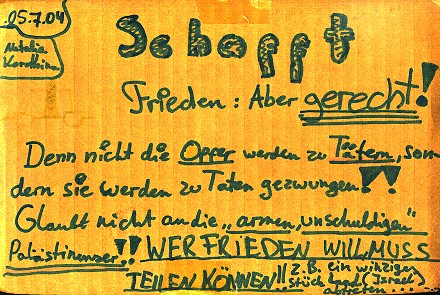 05.7.04
Natalia
Schafft
Frieden: Aber gerecht!
Denn nicht die Opfer werden zu Tätern, son
dern sie werden zu Taten gezwungen!!
Glaubt nicht an die „armen, unschuldigen"
Palästinenser"!! WER FRIEDEN WILL, MUSS
TEILEN KÖNNEN!! z.B. ein winziges
stück Land (Israel)
abtreten...